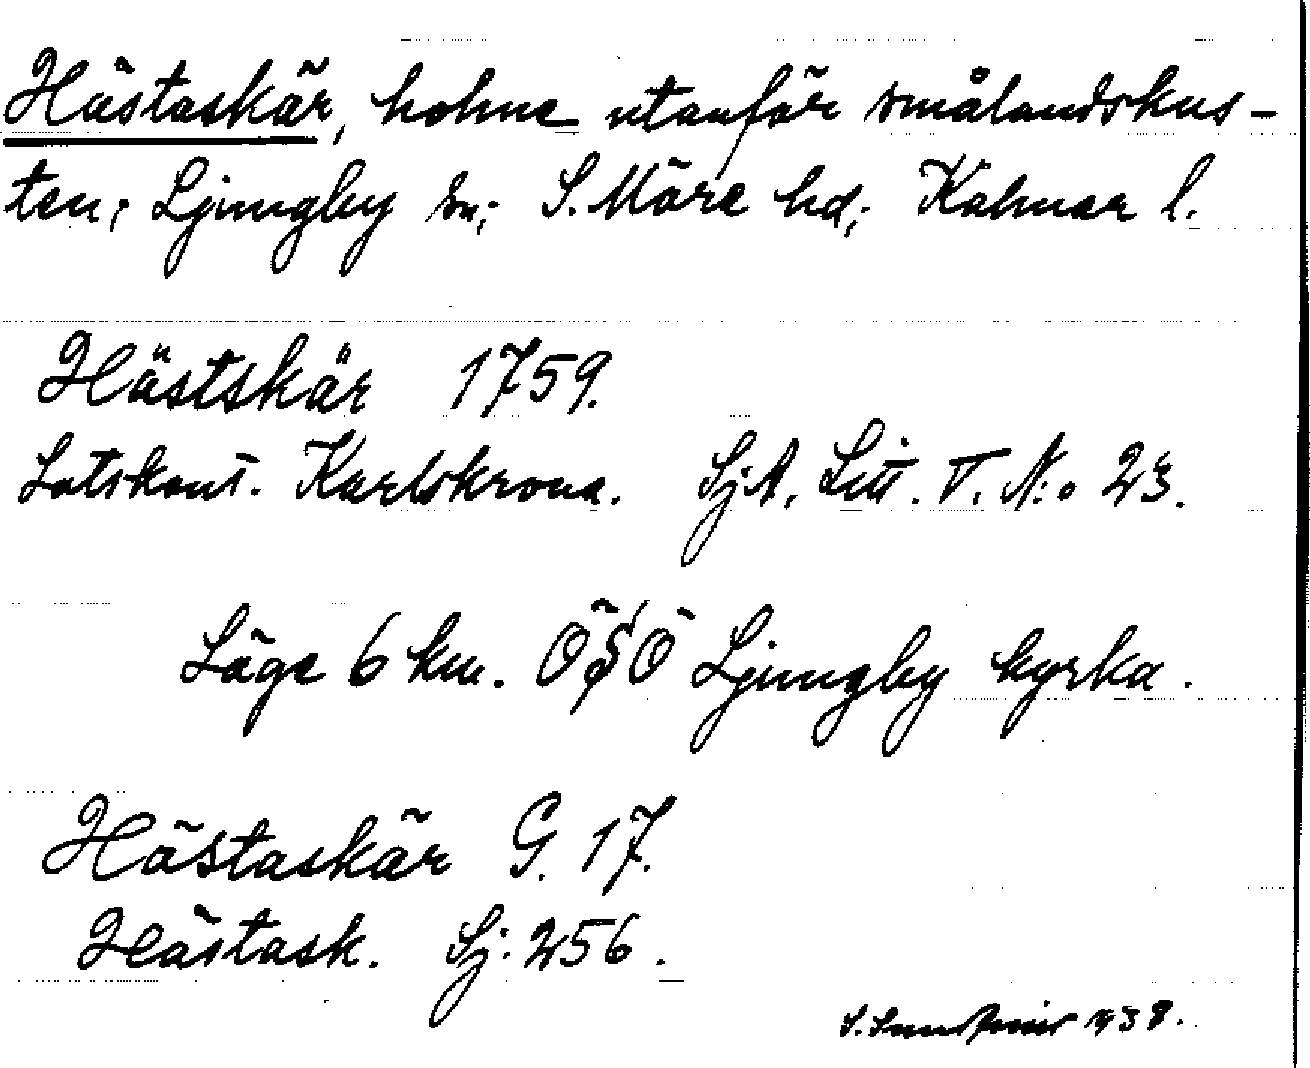 Hästaskär, holme utanför smålandskus-
ten; Ljungby sn; S. Möre hd; Kalmar l.
Hästskär 1759.
Lotskont. Karlskrona. SjA. Litt. V. N:o 23.
Läge 6 km. ÖSÖ Ljungby kyrka.
Hästaskär G. 17.
Hästask. Sj: 256.
S. 1938.